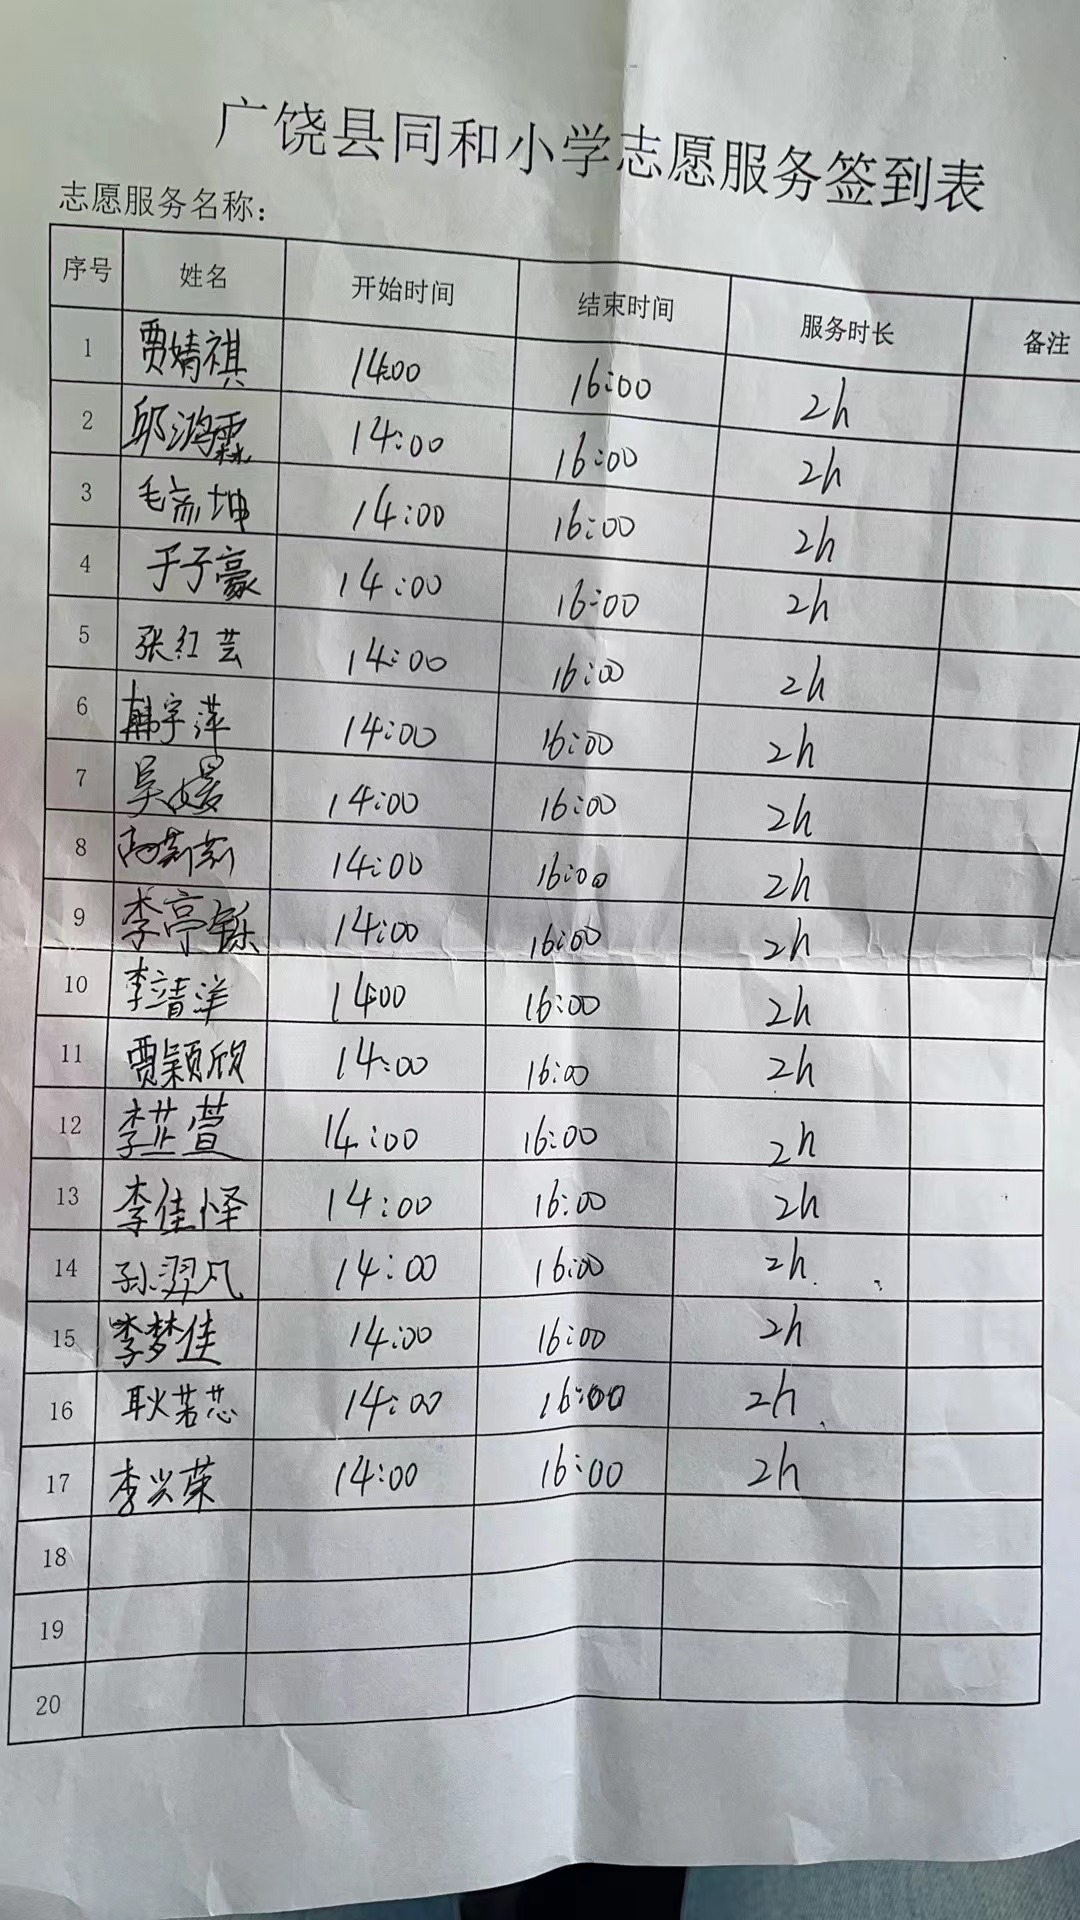 广饶县同和小学志愿服务签到表
志愿服务名称：
序号 姓名 开始时间 结束时间 服务时长 备注
1 贾婧祺 14:00 16:00 2h
2 邱鸿霖 14:00 16:00 2h
3 毛斋坤 14:00 16:00 2h
4 于子豪 14:00 16:00 2h
5 张红芸 14:00 16:00 2h
6 韩宇萍 14:00 16:00 2h
7 吴媛 14:00 16:00 2h
8 14:00 16:00 2h
9 李亭铄 14:00 16:00 2h
10 李靖洋 14:00 16:00 2h
11 贾颖欣 14:00 16:00 2h
12 李芷萱 14:00 16:00 2h
13 李佳怿 14:00 16:00 2h
14 孙羿凡 14:00 16:00 2h
15 李梦佳 14:00 16:00 2h
16 耿若芯 14:00 16:00 2h
17 李兴荣 14:00 16:00 2h
18
19
20